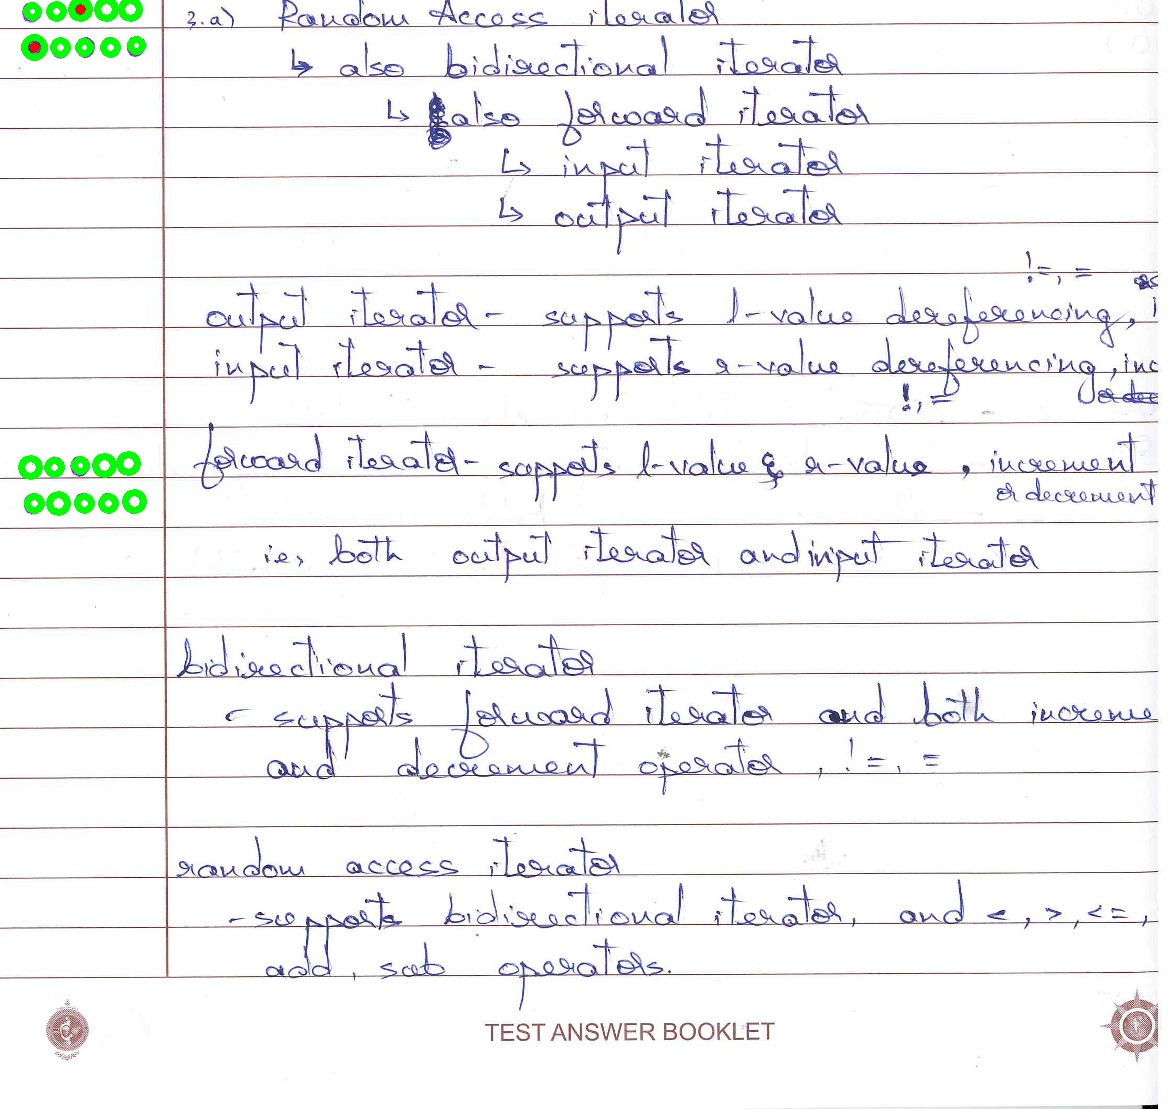 3.a) Random Access iterator
↳ also bidirectional iterator
↳ also forward iterator
↳ input iterator
↳ output iterator
!=, =
output iterator - supports l-value dereferencing,
input iterator - supports r-value dereferencing, inc
!, =
forward iterator - supports l-value & r-value, increment
or decrement
ie, both output iterator and input iterator
bidirectional iterator
- supports forward iterator and both increme
and decrement operator, !=, =
random access iterator
- supports bidirectional iterator, and <, >, <=,
add, sub operators.
TEST ANSWER BOOKLET